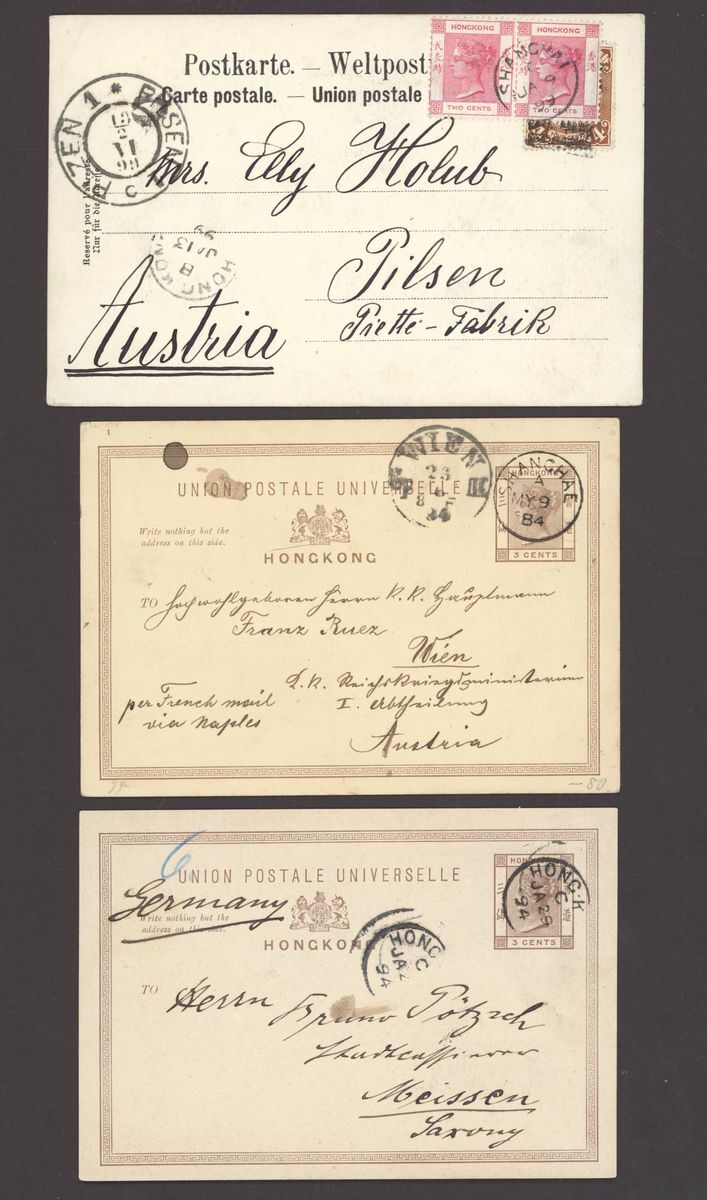 Postkarte. — Weltpost
Carte postale. — Union postale
HONGKONG
TWO CENTS
HONGKONG
TWO CENTS
SHANGHAI
JA 9
99
Reservé pour l'adresse
Nur für die Adresse
Mrs. Elly Holub
Pilsen
Piette-Fabrik
Austria
HONG KONG
B
JA 13
99
WIEN
23
84
SHANGHAE
A
MY 9
84
UNION POSTALE UNIVERSELLE
Write nothing but the
address on this side.
HONGKONG
HONGKONG
3 CENTS
TO Hochwohlgeboren Herrn K. K. Hauptmann
Franz Ruez
Wien
K. K. Reichskriegsministerium
per French mail
I. Abtheilung
via Naples
Austria
99
–80
6
UNION POSTALE UNIVERSELLE
Germany
Write nothing but the
address on this side.
HONGKONG
HONG
3 CENTS
HONG-K
C
JA 29
94
HONG
C
JA 2
94
TO Herrn
Bruno Pötzsch
Stadtcassierer
Meissen
Saxony